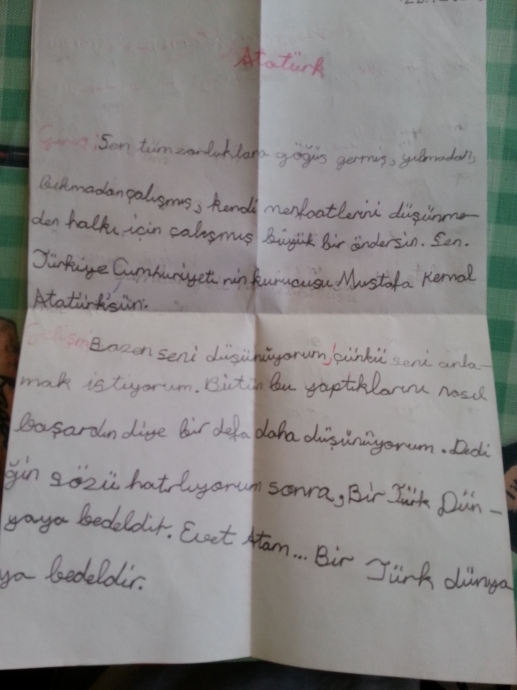 Atatürk
Giriş: Sen tüm zorluklara göğüs germiş, yılmadan,
bıkmadan çalışmış, kendi menfaatlerini düşünme-
den halkı için çalışmış büyük bir öndersin. Sen.
Türkiye Cumhuriyeti'nin kurucusu Mustafa Kemal
Atatürk'sün.
Gelişme: Bazen seni düşünüyorum, çünkü seni anla-
mak istiyorum. Bütün bu yaptıklarını nasıl
başardın diye bir defa daha düşünüyorum. Dedi
ğin sözü hatırlıyorum sonra, Bir Türk Dün-
yaya bedeldir. Evet Atam... Bir Türk dünya
ya bedeldir.